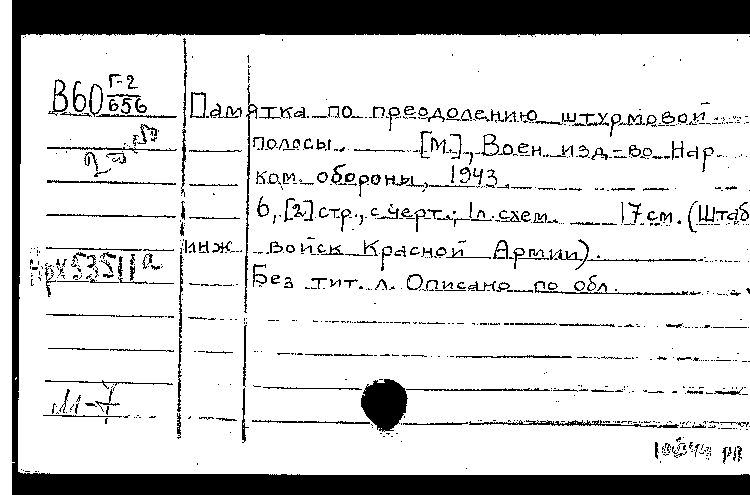 В60 Г-2
656
Памятка по преодолению штурмовой
полосы. [М.], Воен. изд-во Нар.
ком. обороны, 1943.
6, [2] стр., с черт.; 1 л. схем. 17 см. (Штаб
инж. войск Красной Армии).
Без тит. л. Описано по обл.
М-7